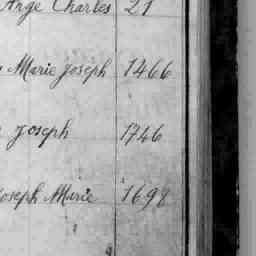 Ange Charles 21
Marie Joseph 1466
Joseph 1746
Joseph Marie 1698